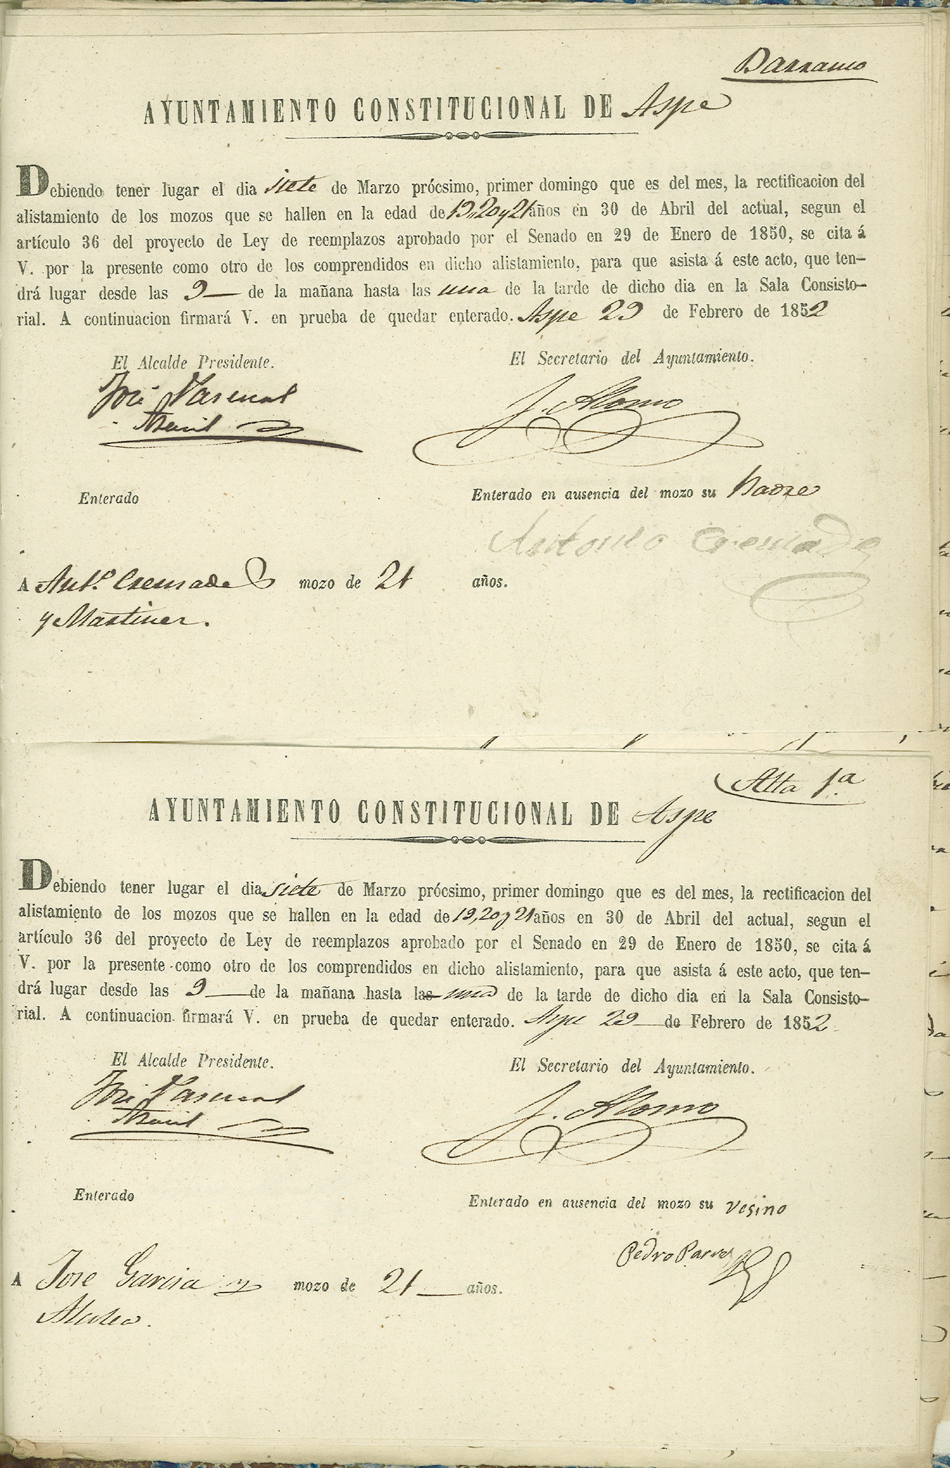 Barranco
AYUNTAMIENTO CONSTITUCIONAL DE Aspe
Debiendo tener lugar el dia siete de Marzo prócsimo, primer domingo que es del mes, la rectificacion del
alistamiento de los mozos que se hallen en la edad de 19, 20 y 21 años en 30 de Abril del actual, segun el
artículo 36 del proyecto de Ley de reemplazos aprobado por el Senado en 29 de Enero de 1850, se cita á
V. por la presente como otro de los comprendidos en dicho alistamiento, para que asista á este acto, que ten–
drá lugar desde las 9 de la mañana hasta las una de la tarde de dicho dia en la Sala Consisto–
rial. A continuacion firmará V. en prueba de quedar enterado. Aspe 29 de Febrero de 1852
El Alcalde Presidente. El Secretario del Ayuntamiento.
José Pascual J. Alonso
Enterado Enterado en ausencia del mozo su Padre
Antonio Cremades
A Antº Cremades mozo de 21 años.
y Martinez.
Alta 1ª
AYUNTAMIENTO CONSTITUCIONAL DE Aspe
Debiendo tener lugar el dia siete de Marzo prócsimo, primer domingo que es del mes, la rectificacion del
alistamiento de los mozos que se hallen en la edad de 19, 20 y 21 años en 30 de Abril del actual, segun el
artículo 36 del proyecto de Ley de reemplazos aprobado por el Senado en 29 de Enero de 1850, se cita á
V. por la presente como otro de los comprendidos en dicho alistamiento, para que asista á este acto, que ten–
drá lugar desde las 9 de la mañana hasta las una de la tarde de dicho dia en la Sala Consisto–
rial. A continuacion firmará V. en prueba de quedar enterado. Aspe 29 de Febrero de 1852
El Alcalde Presidente. El Secretario del Ayuntamiento.
José Pascual J. Alonso
Enterado Enterado en ausencia del mozo su vesino
Pedro
A Jose Garcia mozo de 21 años.